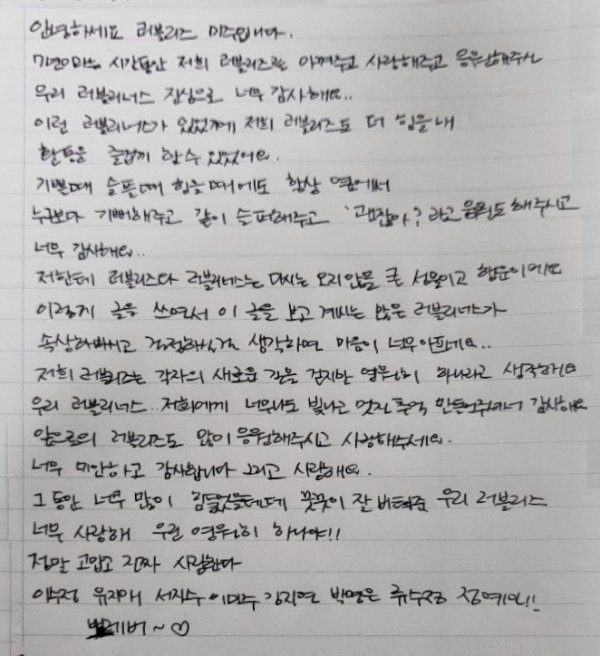 안녕하세요 러블리즈 미주입니다.
7년이라는 시간동안 저희 러블리즈를 아껴주고 사랑해주고 응원해주신
우리 러블리너스 진심으로 너무 감사해요..
이런 러블리너스가 있었기에 저희 러블리즈도 더 힘을내
활동을 즐겁게 할수 있었어요.
기쁠때 슬플때 힘들때에도 항상 옆에서
누구보다 기뻐해주고 같이 슬퍼해주고 '괜찮아? 라고 응원도 해주시고
너무 감사해요..
저한테 러블리즈다 러블리너스는 다시는 오지않을 큰 선물이고 행운이에요
이렇게 글을 쓰면서 이 글을 보고 계시는 많은 러블리너스가
속상해하시고 걱정하실걸 생각하면 마음이 너무아프네요..
저희 러블리즈는 각자의 새로운 길을 걷지만 영원히 하나라고 생각해요
우리 러블리너스.. 저희에게 너무나도 빛나고 멋진 추억 만들어주셔서 감사해요
앞으로의 러블리즈도 많이 응원해주시고 사랑해주세요.
너무 미안하고 감사합니다 그리고 사랑해요.
그동안 너무 많이 힘들었을텐데 꿋꿋이 잘 버텨준 우리 러블리즈
너무 사랑해 우린 영원히 하나야!!
정말 고맙고 진짜 사랑한다
이수정 유지애 서지수 이미주 김지연 박명은 류수정 정예인!!
뽀에버~♡